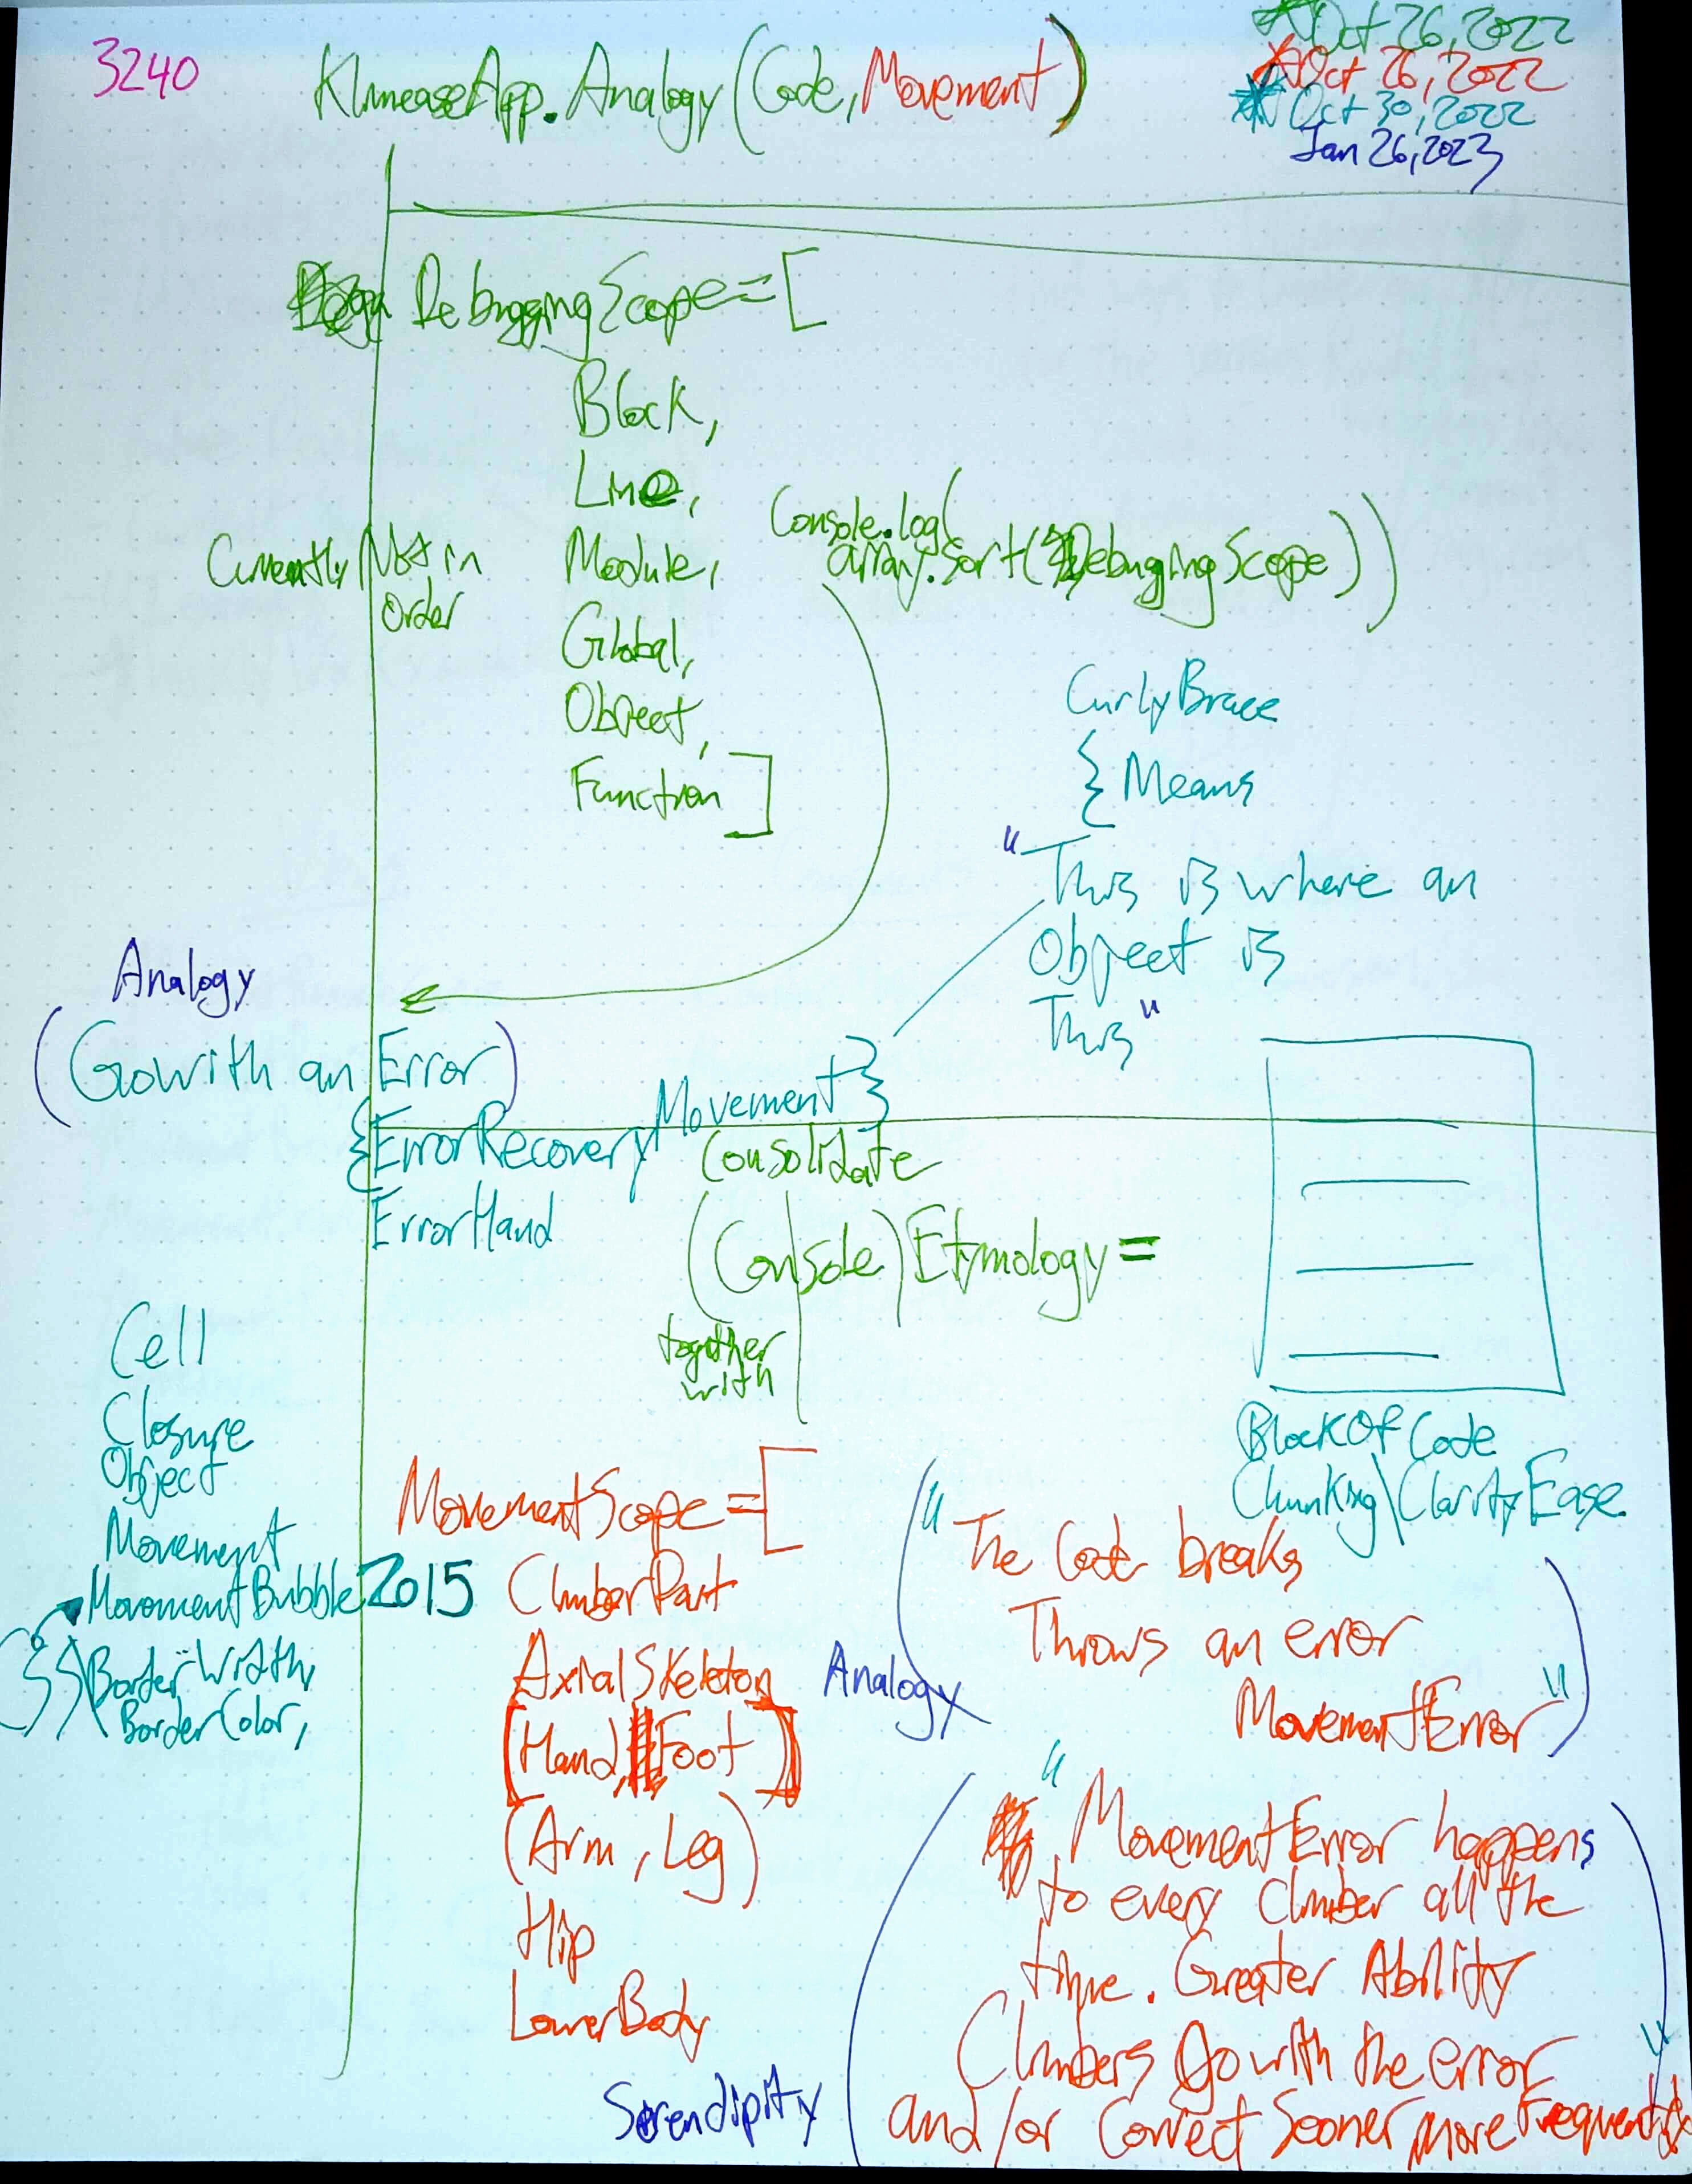 3240
KlimeaseApp.Analogy(Code, Movement)
Oct 26, 2022
Oct 26, 2022
Oct 30, 2022
Jan 26, 2023
DebuggingScope=[
Block,
Line,
Module,
Global,
Object,
Function]
Currently Not in
Order
Console.log(
array.sort(DebuggingScope))
CurlyBrace
{ Means
"This is where an
Object is
This"
Analogy
(Go with an Error)
{ErrorRecoveryMovement}
ErrorHand
Consolidate
(Console) Etymology =
together
with
BlockOfCode
Chunking\ClarityEase
Cell
Closure
Object
Movement
MovementBubble2015
BorderWidth,
BorderColor,
MovementScope=[
ClimberPart
AxialSkeleton
[Hand, Foot]
(Arm, Leg)
Hip
LowerBody
Analogy
("The Code breaks
Throws an error
MovementError")
Serendipity
("MovementError happens
to every climber all the
time. Greater Ability
Climbers Go with the error
and/or Correct Sooner more Frequently")